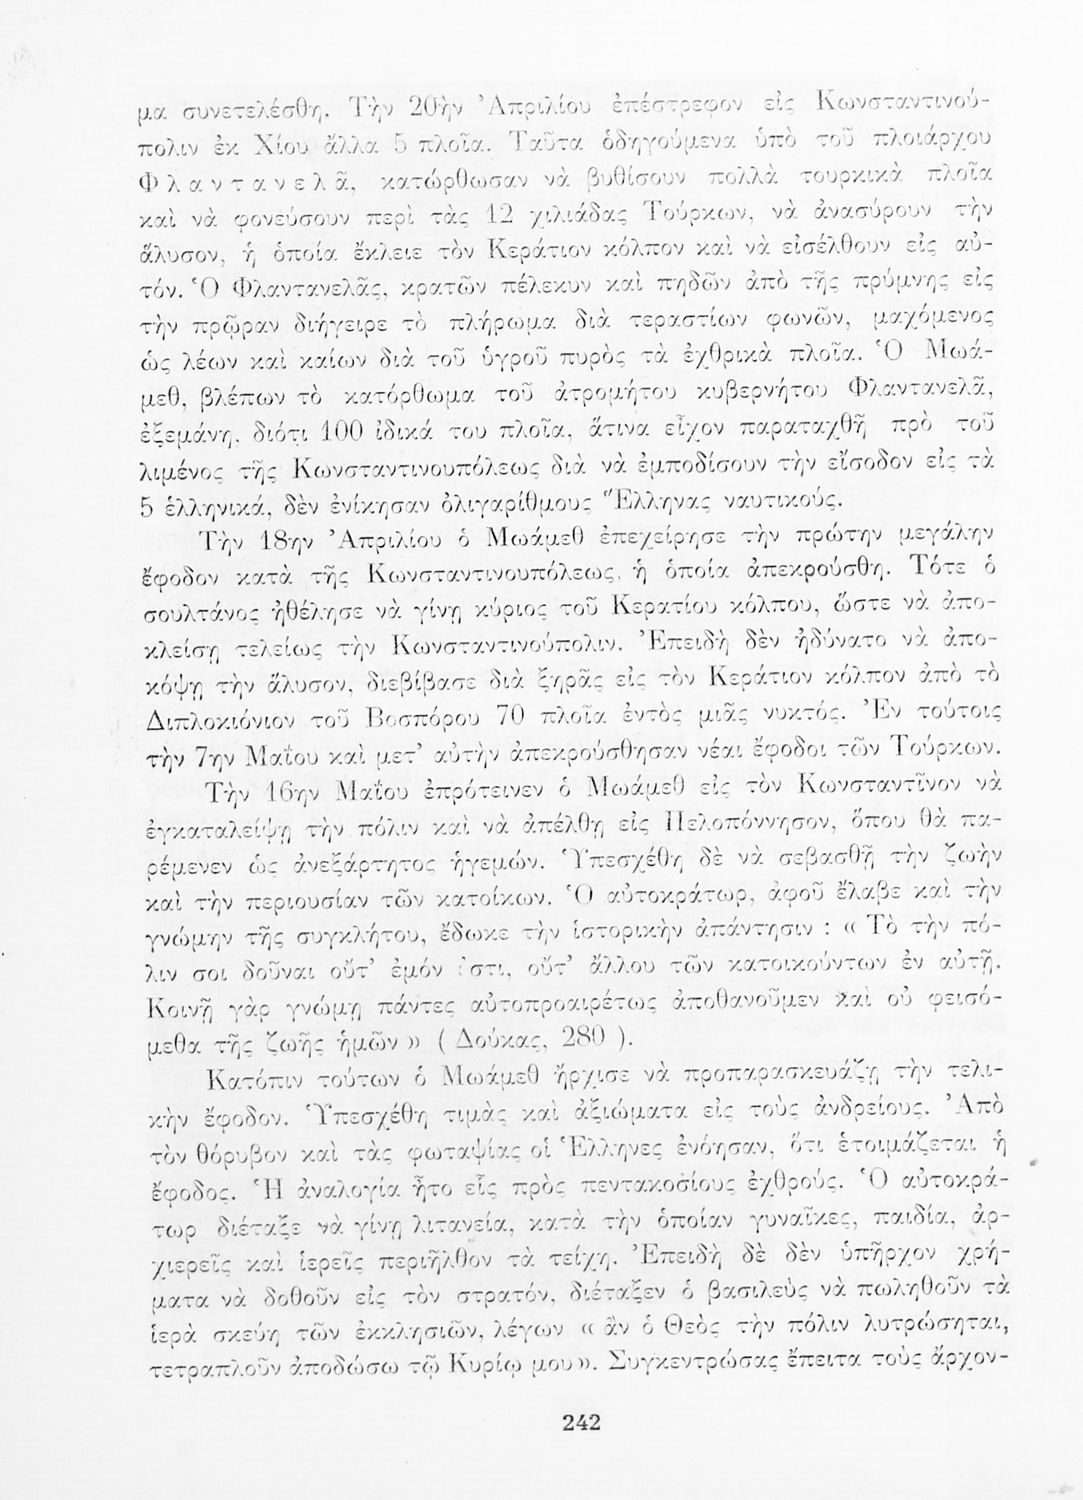 μα συνετελέσθη. Τὴν 20ὴν Ἀπριλίου ἐπέστρεφον εἰς Κωνσταντινού-
πολιν ἐκ Χίου ἄλλα 5 πλοῖα. Ταῦτα ὁδηγούμενα ὑπὸ τοῦ πλοιάρχου
Φ λ α ν τ α ν ε λ ᾶ, κατώρθωσαν νὰ βυθίσουν πολλὰ τουρκικὰ πλοῖα
καὶ νὰ φονεύσουν περὶ τὰς 12 χιλιάδας Τούρκων, νὰ ἀνασύρουν τὴν
ἅλυσον, ἡ ὁποία ἔκλειε τὸν Κεράτιον κόλπον καὶ νὰ εἰσέλθουν εἰς αὐ-
τόν. Ὁ Φλαντανελᾶς, κρατῶν πέλεκυν καὶ πηδῶν ἀπὸ τῆς πρύμνης εἰς
τὴν πρῷραν διήγειρε τὸ πλήρωμα διὰ τεραστίων φωνῶν, μαχόμενος
ὡς λέων καὶ καίων διὰ τοῦ ὑγροῦ πυρὸς τὰ ἐχθρικὰ πλοῖα. Ὁ Μωά-
μεθ, βλέπων τὸ κατόρθωμα τοῦ ἀτρομήτου κυβερνήτου Φλαντανελᾶ,
ἐξεμάνη, διότι 100 ἰδικά του πλοῖα, ἅτινα εἶχον παραταχθῆ πρὸ τοῦ
λιμένος τῆς Κωνσταντινουπόλεως διὰ νὰ ἐμποδίσουν τὴν εἴσοδον εἰς τὰ
5 ἑλληνικά, δὲν ἐνίκησαν ὀλιγαρίθμους Ἕλληνας ναυτικούς.
Τὴν 18ην Ἀπριλίου ὁ Μωάμεθ ἐπεχείρησε τὴν πρώτην μεγάλην
ἔφοδον κατὰ τῆς Κωνσταντινουπόλεως, ἡ ὁποία ἀπεκρούσθη. Τότε ὁ
σουλτάνος ἠθέλησε νὰ γίνῃ κύριος τοῦ Κερατίου κόλπου, ὥστε νὰ ἀπο-
κλείσῃ τελείως τὴν Κωνσταντινούπολιν. Ἐπειδὴ δὲν ἠδύνατο νὰ ἀπο-
κόψῃ τὴν ἅλυσον, διεβίβασε διὰ ξηρᾶς εἰς τὸν Κεράτιον κόλπον ἀπὸ τὸ
Διπλοκιόνιον τοῦ Βοσπόρου 70 πλοῖα ἐντὸς μιᾶς νυκτός. Ἐν τούτοις
τὴν 7ην Μαΐου καὶ μετ’ αὐτὴν ἀπεκρούσθησαν νέαι ἔφοδοι τῶν Τούρκων.
Τὴν 16ην Μαΐου ἐπρότεινεν ὁ Μωάμεθ εἰς τὸν Κωνσταντῖνον νὰ
ἐγκαταλείψῃ τὴν πόλιν καὶ νὰ ἀπέλθῃ εἰς Πελοπόννησον, ὅπου θὰ πα-
ρέμενεν ὡς ἀνεξάρτητος ἡγεμών. Ὑπεσχέθη δὲ νὰ σεβασθῇ τὴν ζωὴν
καὶ τὴν περιουσίαν τῶν κατοίκων. Ὁ αὐτοκράτωρ, ἀφοῦ ἔλαβε καὶ τὴν
γνώμην τῆς συγκλήτου, ἔδωκε τὴν ἱστορικὴν ἀπάντησιν : « Τὸ τὴν πό-
λιν σοι δοῦναι οὔτ’ ἐμόν ἐστι, οὔτ’ ἄλλου τῶν κατοικούντων ἐν αὐτῇ.
Κοινῇ γὰρ γνώμῃ πάντες αὐτοπροαιρέτως ἀποθανοῦμεν καὶ οὐ φεισό-
μεθα τῆς ζωῆς ἡμῶν » ( Δούκας, 280 ).
Κατόπιν τούτων ὁ Μωάμεθ ἤρχισε νὰ προπαρασκευάζῃ τὴν τελι-
κὴν ἔφοδον. Ὑπεσχέθη τιμὰς καὶ ἀξιώματα εἰς τοὺς ἀνδρείους. Ἀπὸ
τὸν θόρυβον καὶ τὰς φωταψίας οἱ Ἕλληνες ἐνόησαν, ὅτι ἑτοιμάζεται ἡ
ἔφοδος. Ἡ ἀναλογία ἦτο εἷς πρὸς πεντακοσίους ἐχθρούς. Ὁ αὐτοκρά-
τωρ διέταξε νὰ γίνῃ λιτανεία, κατὰ τὴν ὁποίαν γυναῖκες, παιδία, ἀρ-
χιερεῖς καὶ ἱερεῖς περιῆλθον τὰ τείχη. Ἐπειδὴ δὲ δὲν ὑπῆρχον χρή-
ματα νὰ δοθοῦν εἰς τὸν στρατόν, διέταξεν ὁ βασιλεὺς νὰ πωληθοῦν τὰ
ἱερὰ σκεύη τῶν ἐκκλησιῶν, λέγων « ἂν ὁ Θεὸς τὴν πόλιν λυτρώσηται,
τετραπλοῦν ἀποδώσω τῷ Κυρίῳ μου ». Συγκεντρώσας ἔπειτα τοὺς ἄρχον-
242